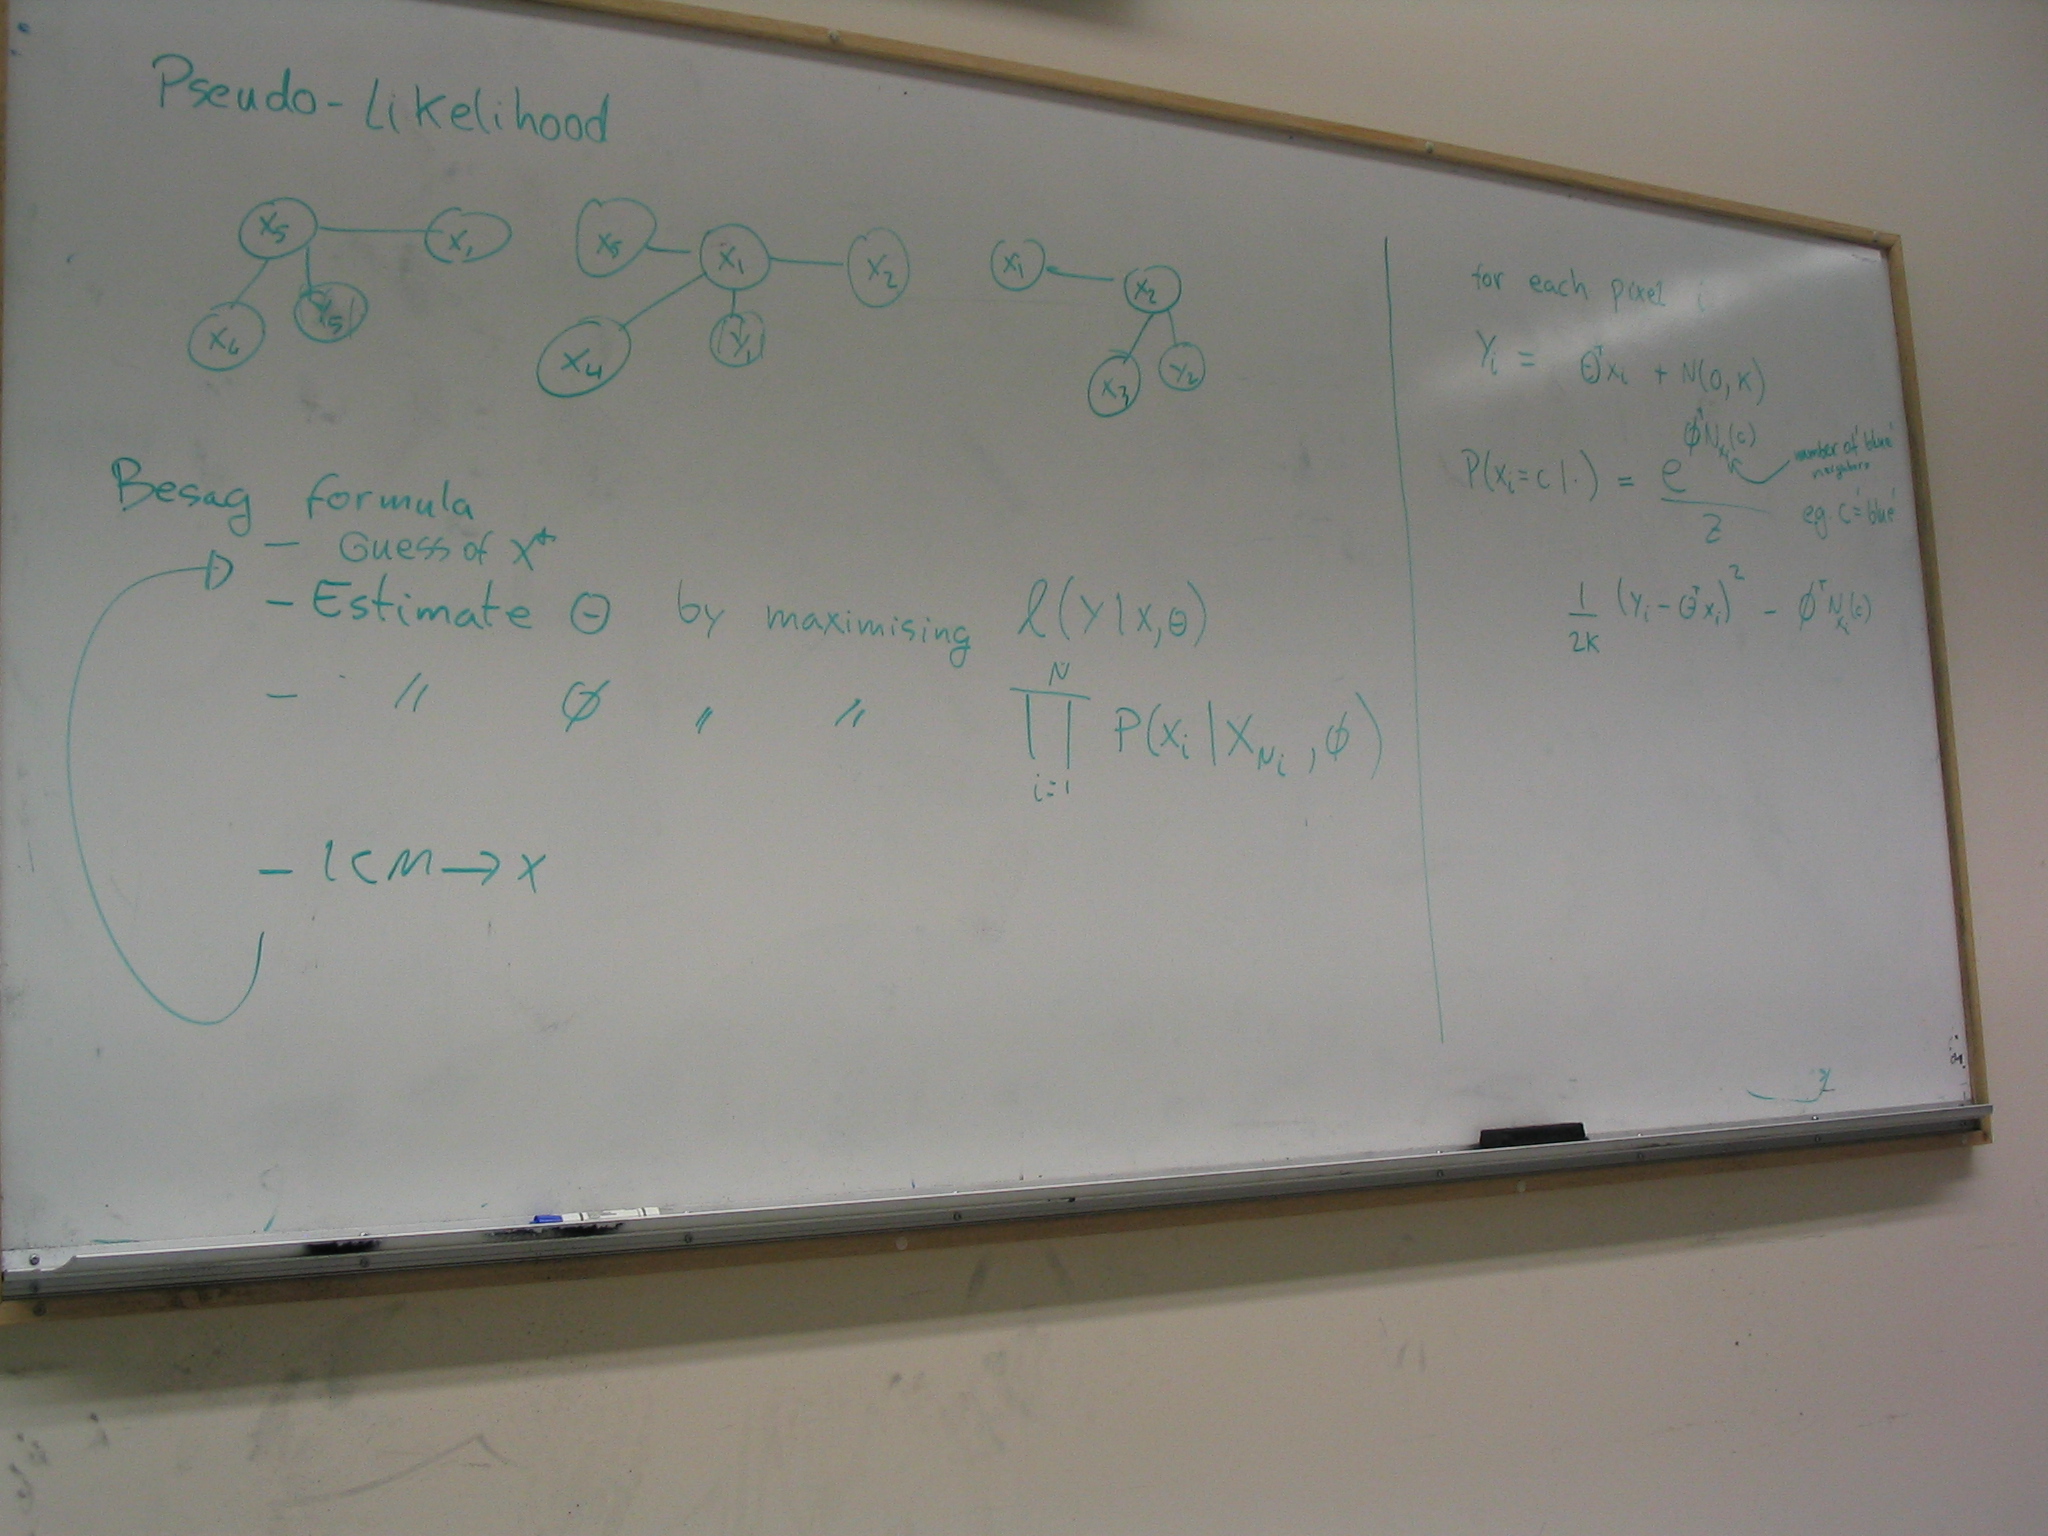 Pseudo-Likelihood
X5 X1 X5 X1 X2 X1 X2
X6 Y5 X4 Y1 X3 Y2
Besag formula
- Guess of X*
- Estimate Θ by maximising ℓ(Y|X,Θ)
- " ϕ " " ∏_{i=1}^{N} P(X_i | X_{N_i}, ϕ)
- ICM → X
for each pixel i
Y_i = Θ^T x_i + N(0, K)
P(x_i = c | ·) = e^{ϕ^T N_{x_i}(c)} / Z
number of 'blue'
neighbors
eg. c = 'blue'
1/2K (Y_i - Θ^T x_i)^2 - ϕ^T N_{x_i}(c)